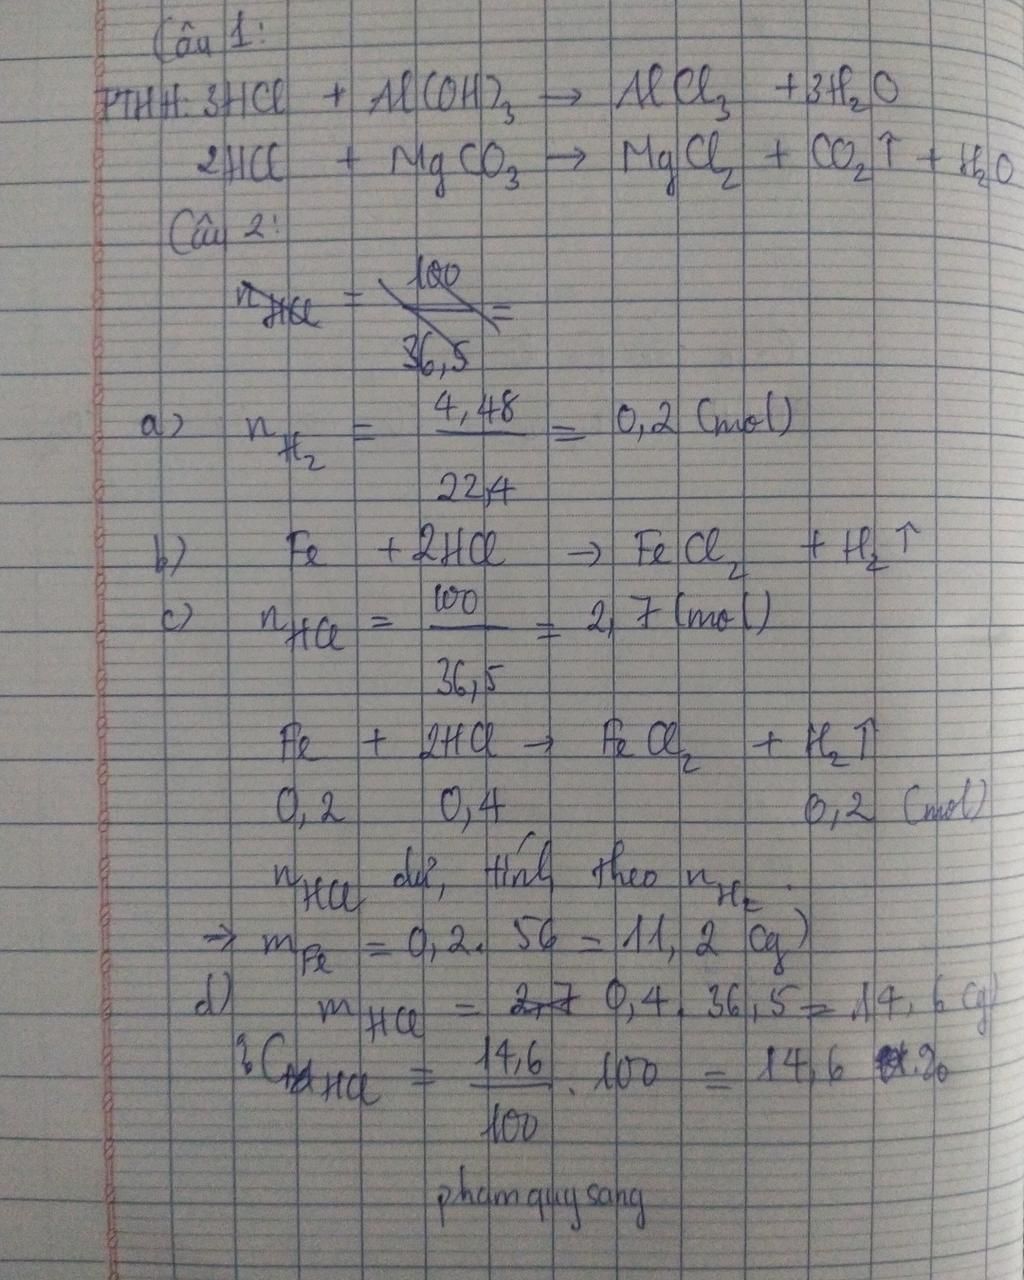 Câu 1:
PTHH: 3HCl + Al(OH)₃ → AlCl₃ + 3H₂O
2HCl + MgCO₃ → MgCl₂ + CO₂↑ + H₂O
Câu 2:
n_HCl = 100/36,5 =
a) n_H₂ = 4,48/22,4 = 0,2 (mol)
b) Fe + 2HCl → FeCl₂ + H₂↑
c) n_HCl = 100/36,5 = 2,7 (mol)
Fe + 2HCl → FeCl₂ + H₂↑
0,2 0,4 0,2 (mol)
n_HCl dư, tính theo n_H₂.
⇒ m_Fe = 0,2. 56 = 11,2 (g)
d) m_HCl = 2,7 0,4. 36,5 = 14,6 (g)
C_HCl = 14,6/100 . 100 = 14,6 %
phamquysang